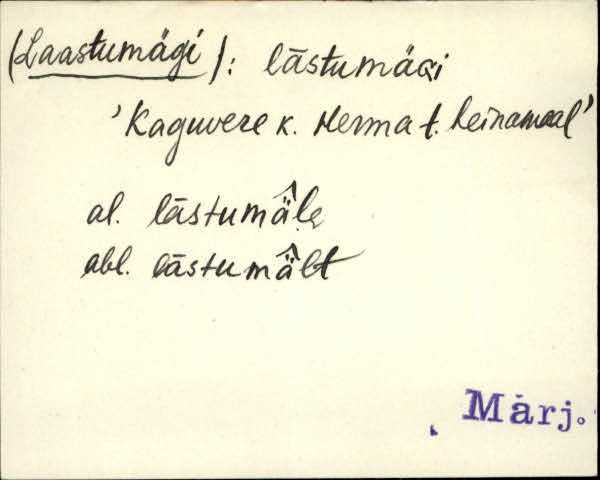 (Laastumägi): lāstumäɢi
'Kaguvere k. Herma t. heinamaal'
al. lāstumä̂le
abl. lāstumä̂lt
Märj.